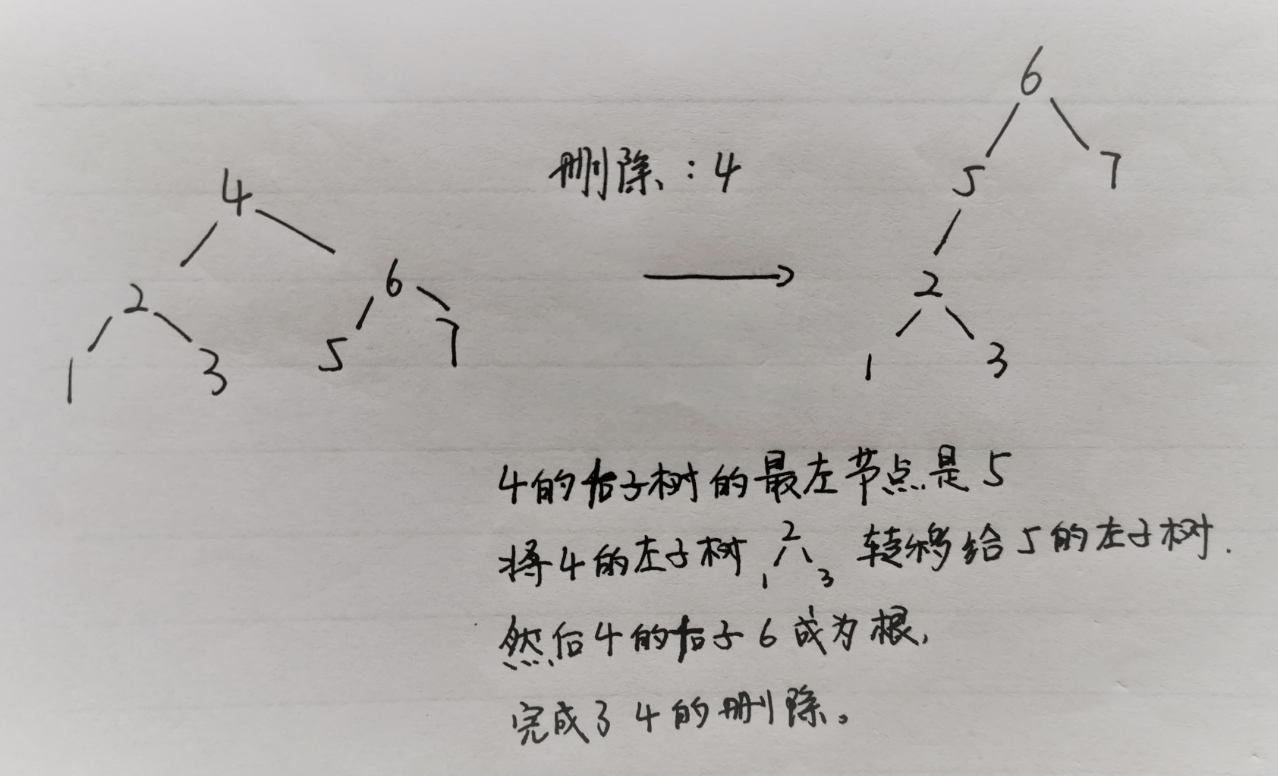 4
2
6
1
3
5
7
删除:4
6
5
7
2
1
3
4的右子树的最左节点是5
将4的左子树 2 1 3 转移给5的左子树.
然后4的右子6成为根,
完成了4的删除。